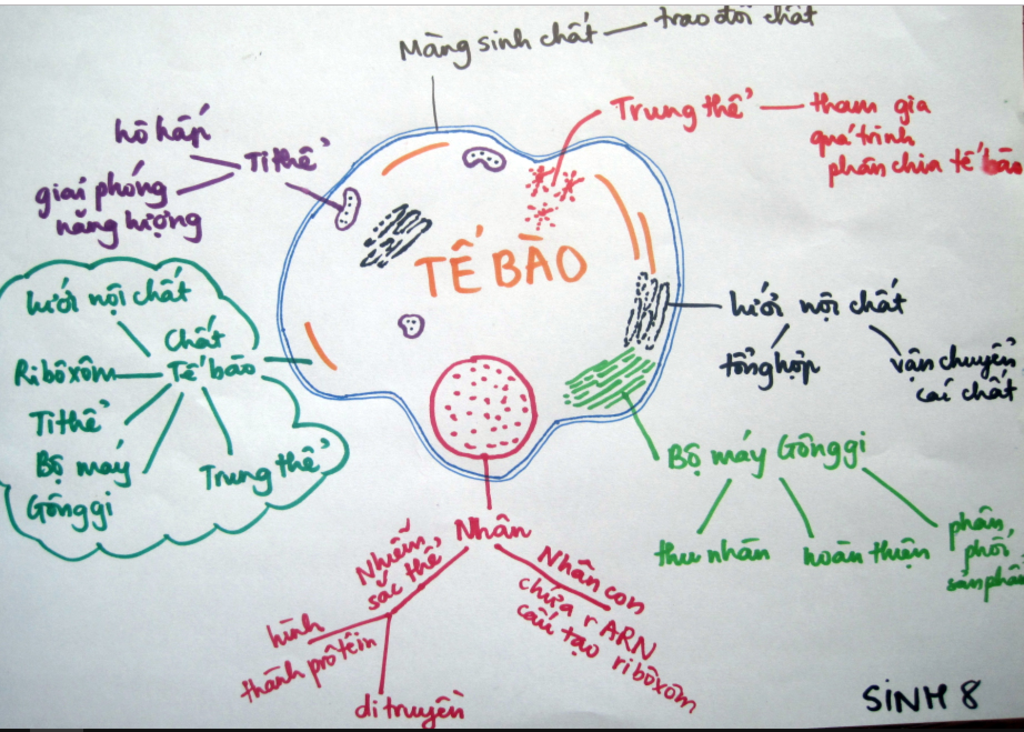 Màng sinh chất — trao đổi chất
Trung thể — tham gia
quá trình
phân chia tế bào
hô hấp
Ti thể
giải phóng
năng lượng
TẾ BÀO
lưới nội chất
Chất
tế bào
Ribôxôm
Ti thể
Bộ máy
Gônggi
Trung thể
lưới nội chất
tổng hợp
vận chuyển
các chất
Bộ máy Gônggi
thu nhân
hoàn thiện
phân
phối
sản phẩ
Nhân
Nhiễm
sắc thể
hình
thành prôtêin
di truyền
Nhân con
chứa rARN
cấu tạo ribôxôm
SINH 8